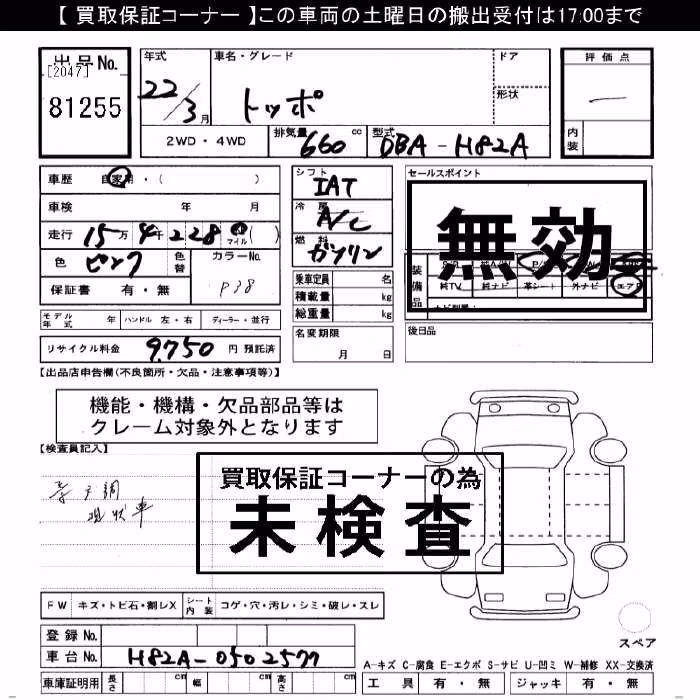 【 買取保証コーナー 】この車両の土曜日の搬出受付は17:00まで
出品No. [2047] 81255
年式 22/3月
車名・グレード トッポ
ドア
形状
評価点 ー
内装
2WD・4WD
排気量 660 cc
型式 DBA-H82A
車歴 自家用・( )
車検 年 月
走行 15万4千228 マイル ( )
色 ピンク 色替
カラーNo. P38
保証書 有・無
シフト IAT
冷房 A/C
燃料 ガソリン
乗車定員 名
積載量 kg
総重量 kg
セールスポイント
無効
装備品
純TV 純ナビ 革シート 外ナビ エアB
モデル年式 年 ハンドル 左・右 ディーラー・並行
名変期限 月 日
後日品
リサイクル料金 9,750 円 預託済
【出品店申告欄(不良箇所・欠品・注意事項等)】
機能・機構・欠品部品等は
クレーム対象外となります
【検査員記入】
買取保証コーナーの為
未検査
現状車
FW キズ・トビ石・割レX シート内装 コゲ・穴・汚レ・シミ・破レ・スレ
スペア
登録No.
車台No. H82A-0502577
A-キズ C-腐食 E-エクボ S-サビ U-凹ミ W-補修 XX-交換済
車庫証明用 長さ cm 幅 cm 高さ cm
工具 有・無 ジャッキ 有・無